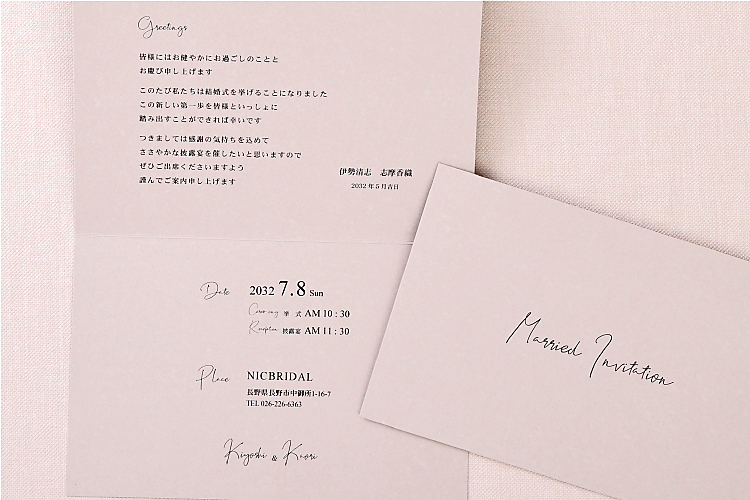 Greetings
皆様にはお健やかにお過ごしのことと
お慶び申し上げます
このたび私たちは結婚式を挙げることになりました
この新しい第一歩を皆様といっしょに
踏み出すことができれば幸いです
つきましては感謝の気持ちを込めて
ささやかな披露宴を催したいと思いますので
ぜひご出席くださいますよう
謹んでご案内申し上げます
伊勢清志 志摩香織
2032年5月吉日
Date 2032 7.8 Sun
Ceremony 挙 式 AM 10 : 30
Reception 披露宴 AM 11 : 30
Place NICBRIDAL
長野県長野市中御所1-16-7
TEL 026-226-6363
Kiyoshi & Kaori
Married Invitation